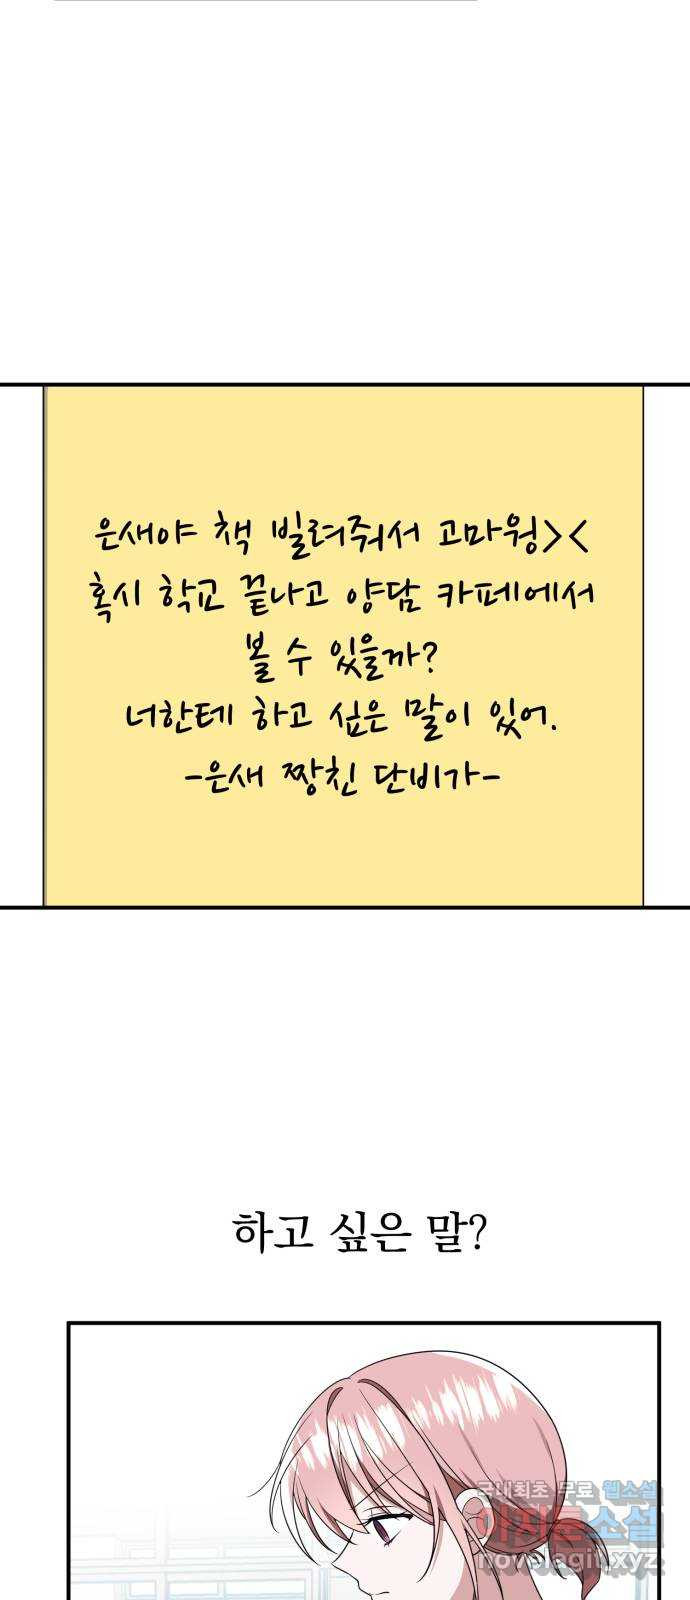 은새야 책 빌려줘서 고마웡><
혹시 학교 끝나고 양담 카페에서
볼 수 있을까?
너한테 하고 싶은 말이 있어.
-은새 짱친 단비가-
하고 싶은 말?
국내최초 무료 웹소설
아지툰소설
novelagit.xyz